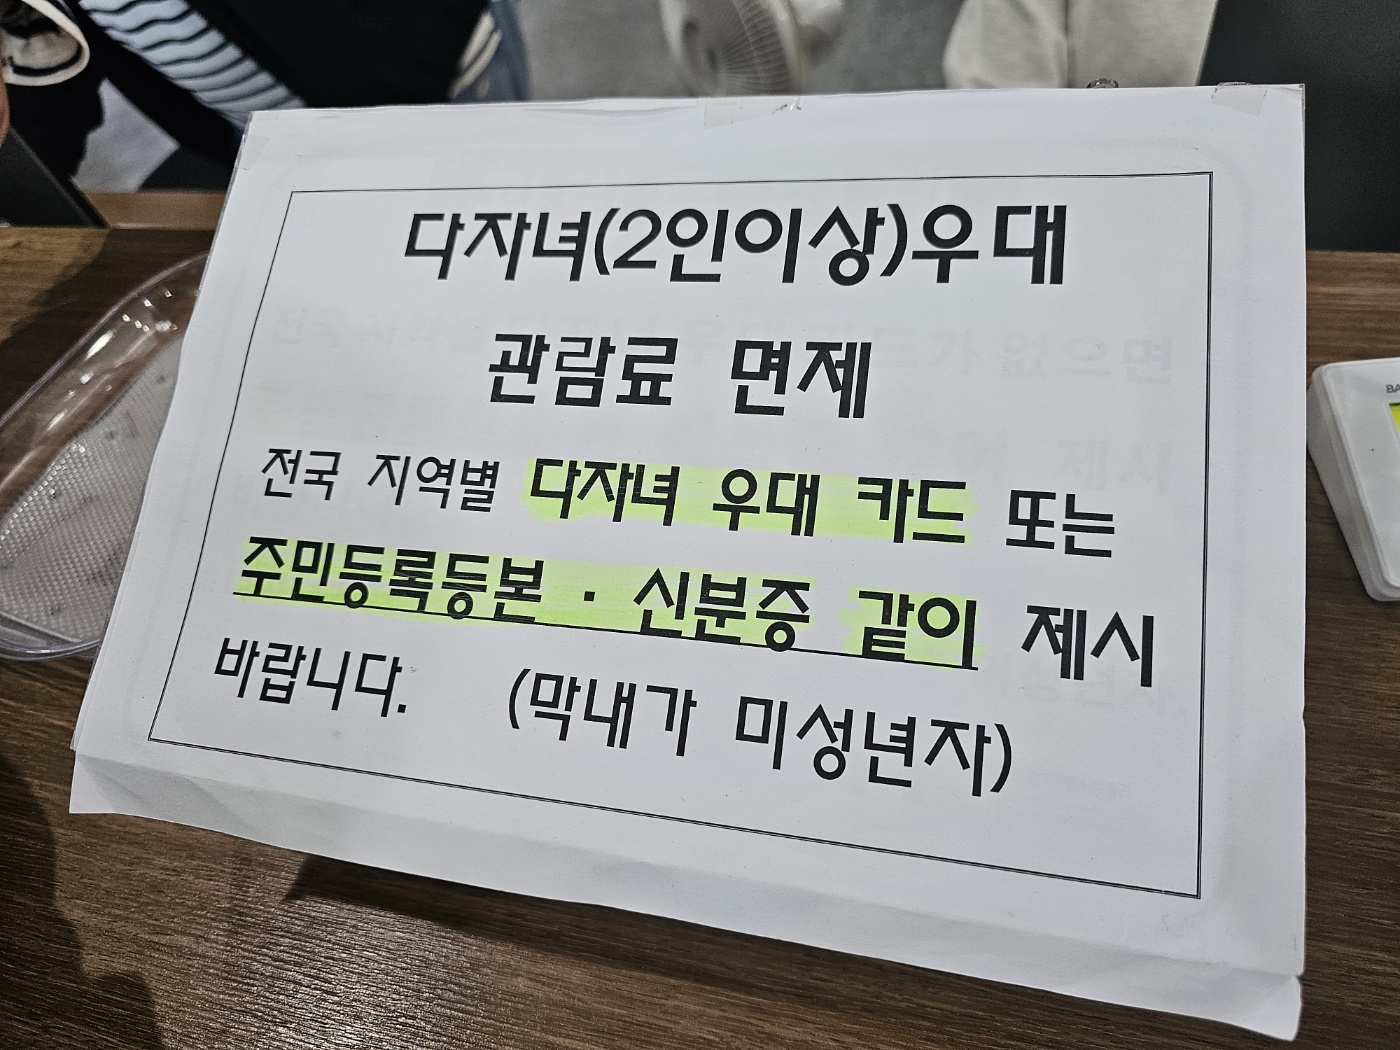 다자녀(2인이상)우대
관람료 면제
전국 지역별 다자녀 우대 카드 또는
주민등록등본 · 신분증 같이 제시
바랍니다. (막내가 미성년자)